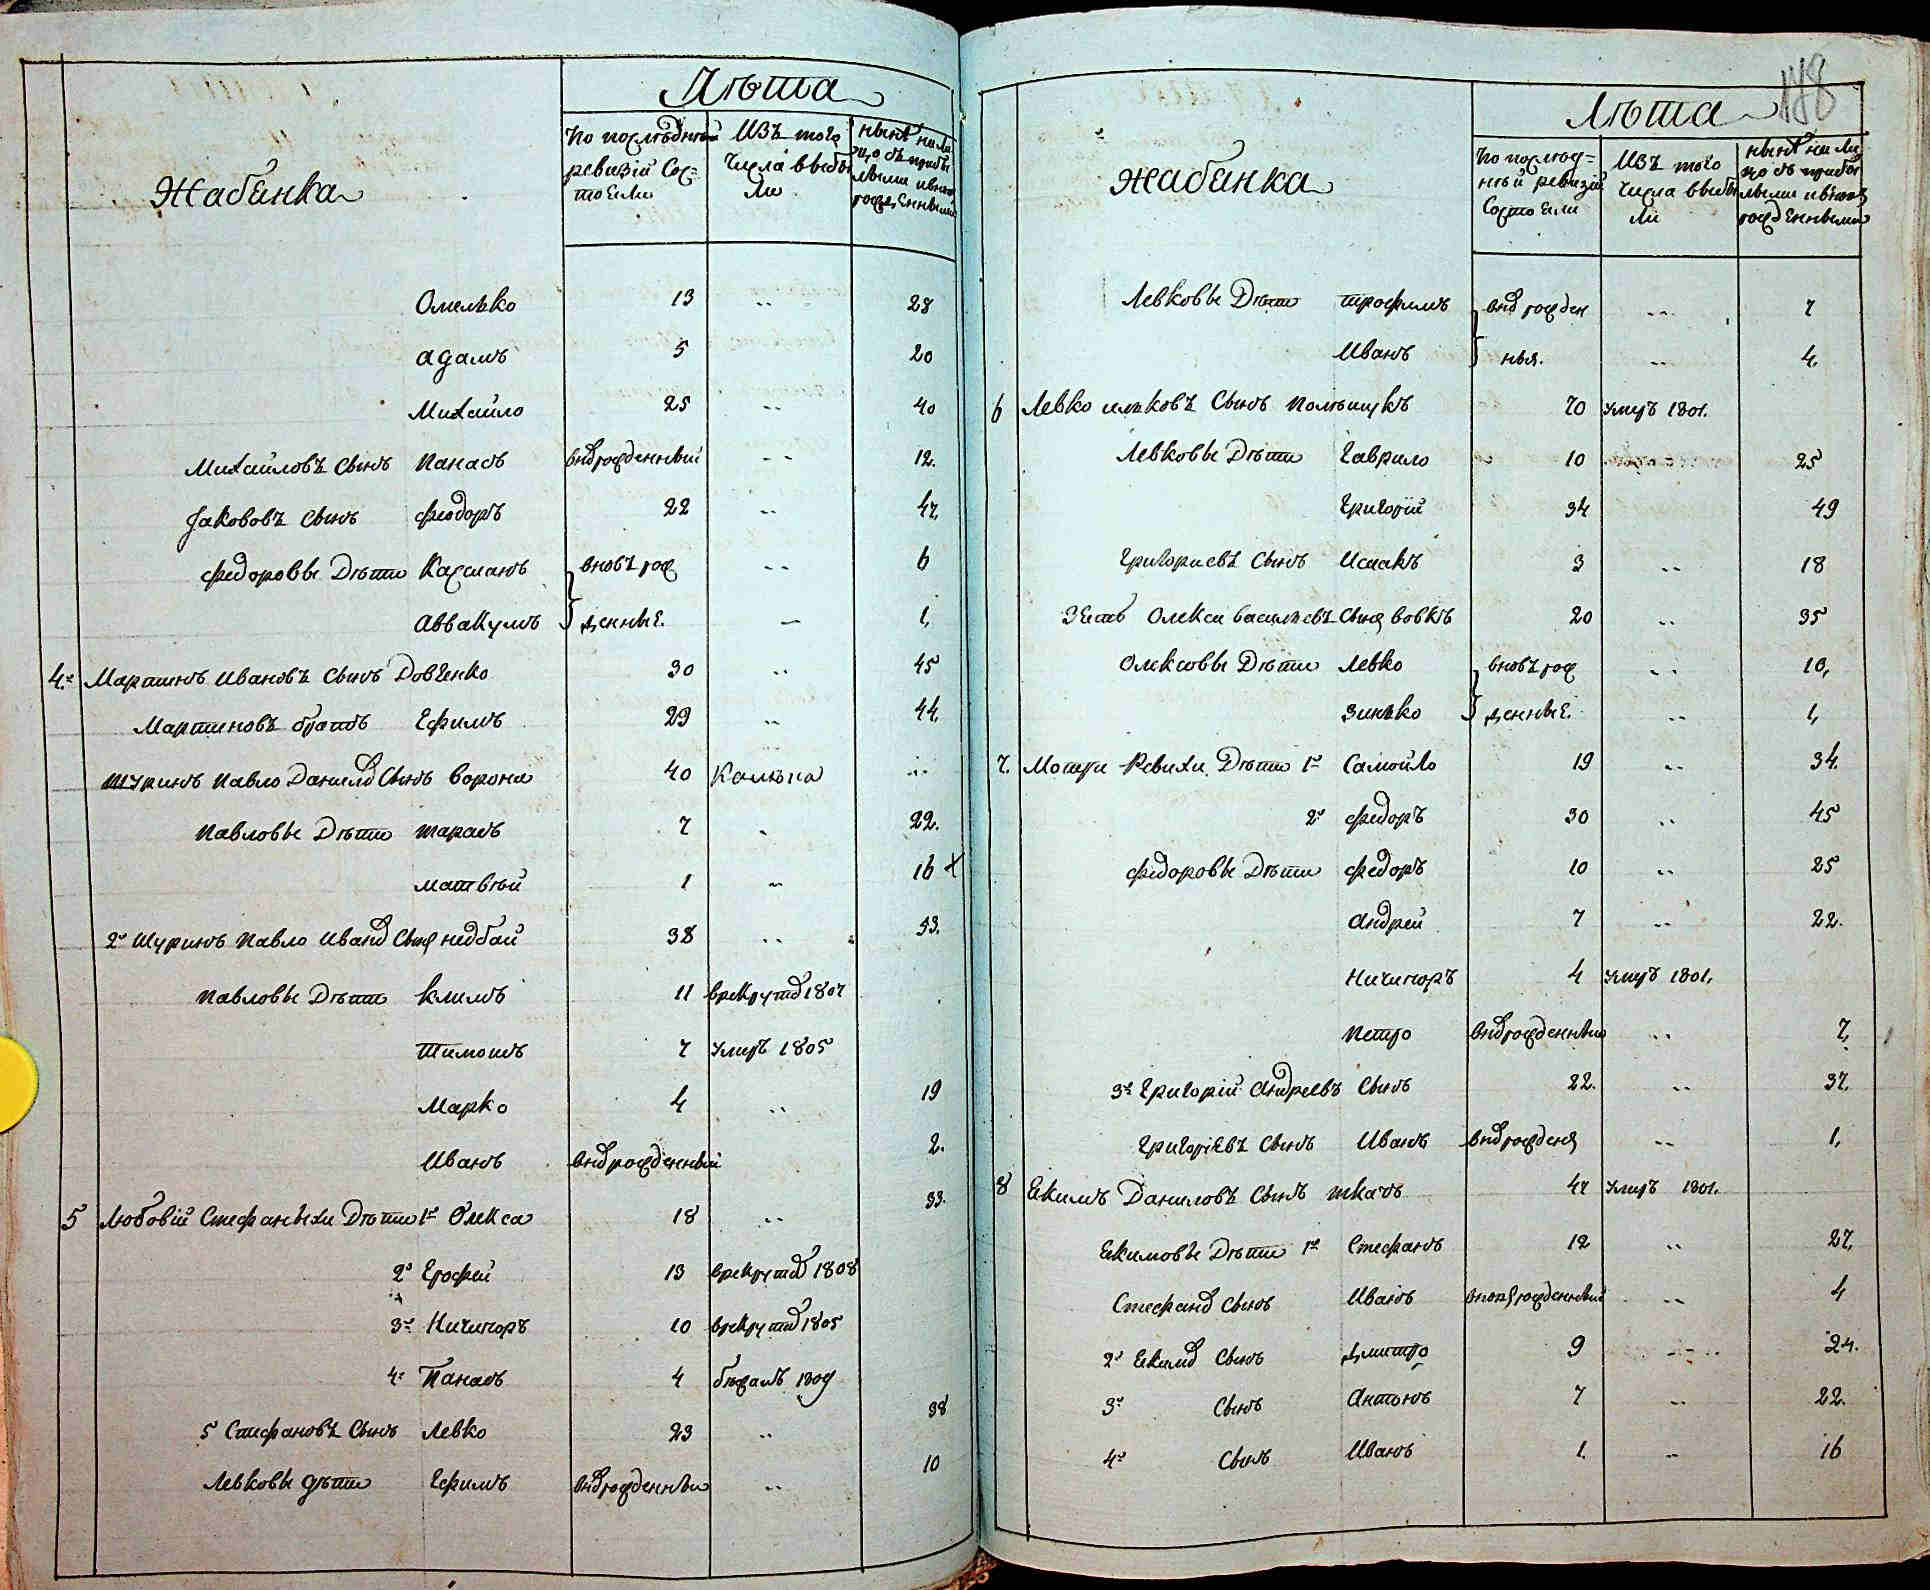 Лѣта
Жабинка
По послѣдней ревизіи Состоели
Изъ того Числа выбыли
нынѣ на лицо съ прибылыми и вновь рожденными
Омелько 13 .. 28
адамъ 5 20
Михайло 25 .. 40
Михайловъ Сынъ Панасъ внов рожденный .. 12.
Яаковъ Сынъ Феодоръ 22 .. 47
Федоровы Дѣти Касиянъ вновъ рож .. 6
Аввакумъ денные. .. 1,
4. Мартинъ Ивановъ Сынъ Довгенко 30 .. 45
Мартиновъ братъ Ефимъ 29 .. 44.
Шуринъ Павло Данилов Сынъ Ворона 40 ..
Павловы Дѣти тарасъ 7 . 22.
матвѣй 1 .. 16
2й Шуринъ Павло Иванов Сынъ недбай 38 .. 53.
Павловы Дѣти климъ 11 врекрутах 1807
Тимошъ 7 умеръ 1805
Марко 4 .. 19
Иванъ внов рожденный 2.
5 Любовій Стефанихи Дѣти 1й Олекса 18 .. 33.
2й Ерофей 13 врекрутах 1808
3й Ничипоръ 10 врекрутах 1805
4й Панасъ 4 бежалъ 1809
5 Стефановъ Сынъ Левко 23 .. 38
Левковы дѣти Ефимъ внов рожденны .. 10
148
Лѣта
Жабинка
По послед=ней ревизіи Состоели
Изъ того Числа выбыли
нынѣ на лицо съ прибылыми и вновь рожденными
Левковы Дѣти трофимъ внов рожден .. 7
Иванъ ныя. .. 4.
6 Левко ильковъ Сынъ 70 умеръ 1801.
Левковы Дѣти Гаврило 10 25
Григорій 34 49
Григориевъ Сынъ Исаакъ 3 .. 18
Зеть Олекси васильевъ Сынъ вовкъ 20 .. 35
Олексовы Дѣти Левко вновъ рож .. 10,
Зинько денные. .. 1,
7. Мотри Ревихи Дѣти 1й Самойло 19 .. 34.
2й федоръ 30 .. 45
федоровы Дѣти федоръ 10 .. 25
Андрей 7 .. 22.
Ничипоръ 4 умеръ 1801.
Петро внов рожденны .. 7,
3й Григорій Андреевъ Сынъ 22. .. 37.
Григоріевъ Сынъ Иванъ внов рожден .. 1,
8 Екимъ Даниловъ Сынъ ткачъ 47 умеръ 1801.
Екимовы Дѣти 1й Стефанъ 12 .. 27,
Стефанов Сынъ Иванъ рожденный .. 4
2й Екимов Сынъ дмитро 9 .. 24.
3й Сынъ Антонъ 7 .. 22.
4й Сынъ Иванъ 1. .. 16